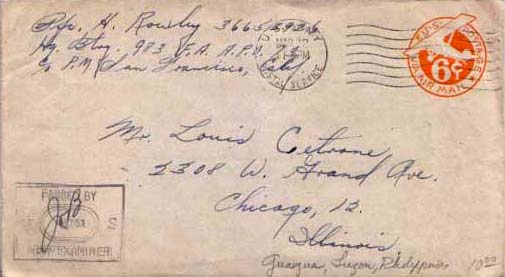 Pfc. H. Rowley 36652936
Hq. Btry. 983 F.A. A.P.O. 73
c/o P.M. San Francisco, Calif
POSTAL SERVICE
U.S. POSTAGE
6¢
VIA AIR MAIL
Mr. Louis Cetrone
2308 W. Grand Ave.
Chicago, 12.
Illinois
PASSED BY
S
ARMY EXAMINER
Guagua, Luzon, Philippines
10.00